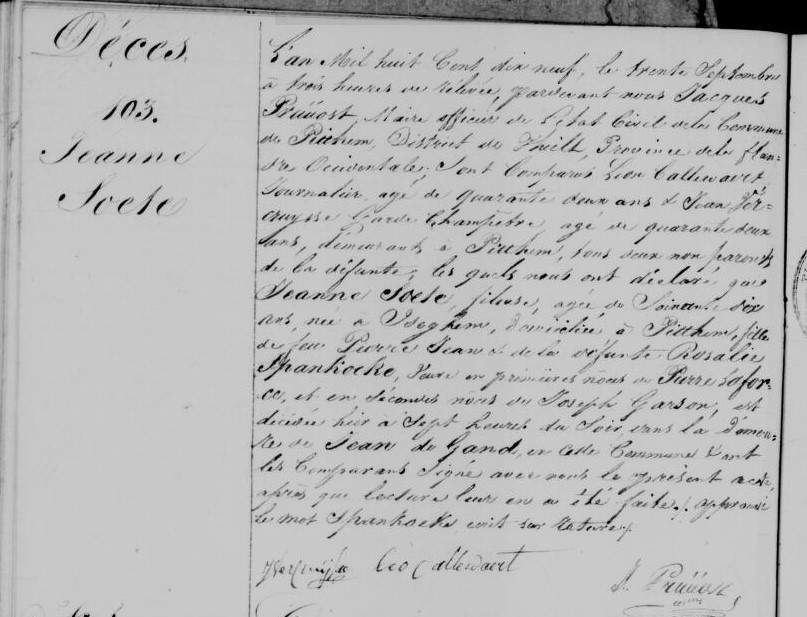 Déces.
103.
Jeanne
Soete
L'an Mil huit Cent dix neuf, le trente Septembre
à trois heures de rélévée, pardevant nous Jacques
Prüüost, Maire officier de l'Etat Civil de la Commune
de Pitthem, District de Thielt, Province de la flan=
dre Occidentale; Sont Comparus Léon Callewaert
Journalier, agé de quarante deux ans & Jean Ver=
cruysse Garde Champetre, agé de quarante deux
ans, démeurants à Pitthem, tous deux non parents
de la défunte; les quels nous ont déclaré que
Jeanne Soete, fileuse, agée de Soixante dix
ans, née à Iseghem, Domiciliée à Pitthem, fille
de feu Pierre Jean & de la défunte Rosalie
Spankocke, Veuve en premières nôces de Pierre Lafor=
ce, et en sécondes nôces de Joseph Garson, est
décédée hier à Sept heures du Soir, dans la démeu=
re de Jean de Gand, en cette Commune & ont
les Comparans Signé avec nous le présent acte,
après que lecture leur en a été faite. approuvé
le mot Spankocke écrit sur rature.
Leo Callewaert
J. Prüüost